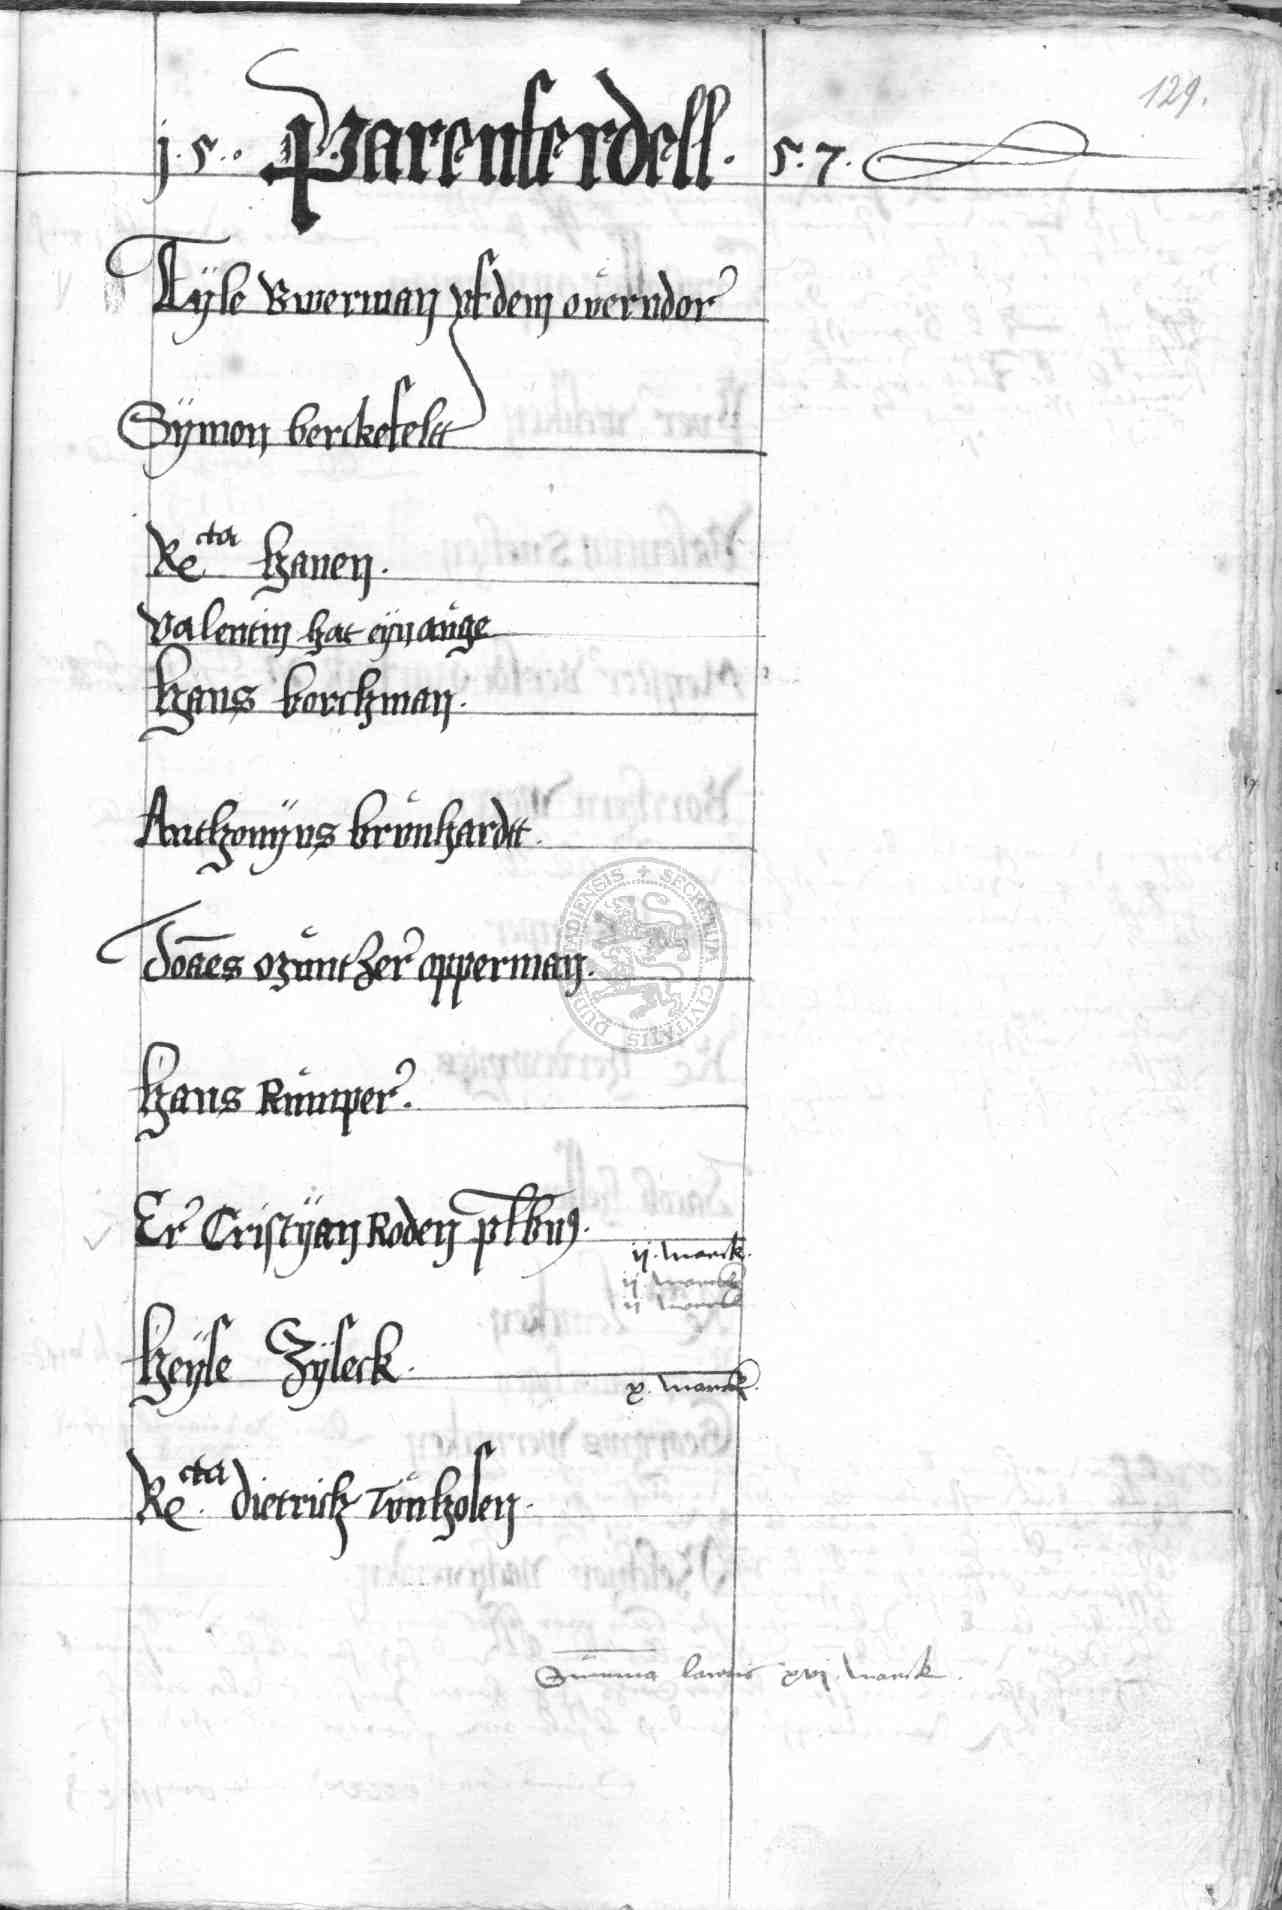 129.
j.5.. Parenferdell. 5.7.
Tÿle Bwerman vf dem overndor
Sÿmon berckefeltt
Re^cta hanen.
Valentin hat eÿn auge
hans borchman.
Anthonÿus brunhardt.
Joaes gzunther opperman.
hans Rumper.
Er Cristÿan Roden plbn9.
ij. marck.
ij marck
ij marck
heÿse Zÿseck.
x. marck.
Re^cta. dietrich Tunhosen.
Summa lateris xvj. marck.
DUDERSTADIENSIS + SECRETUM CIVITATIS